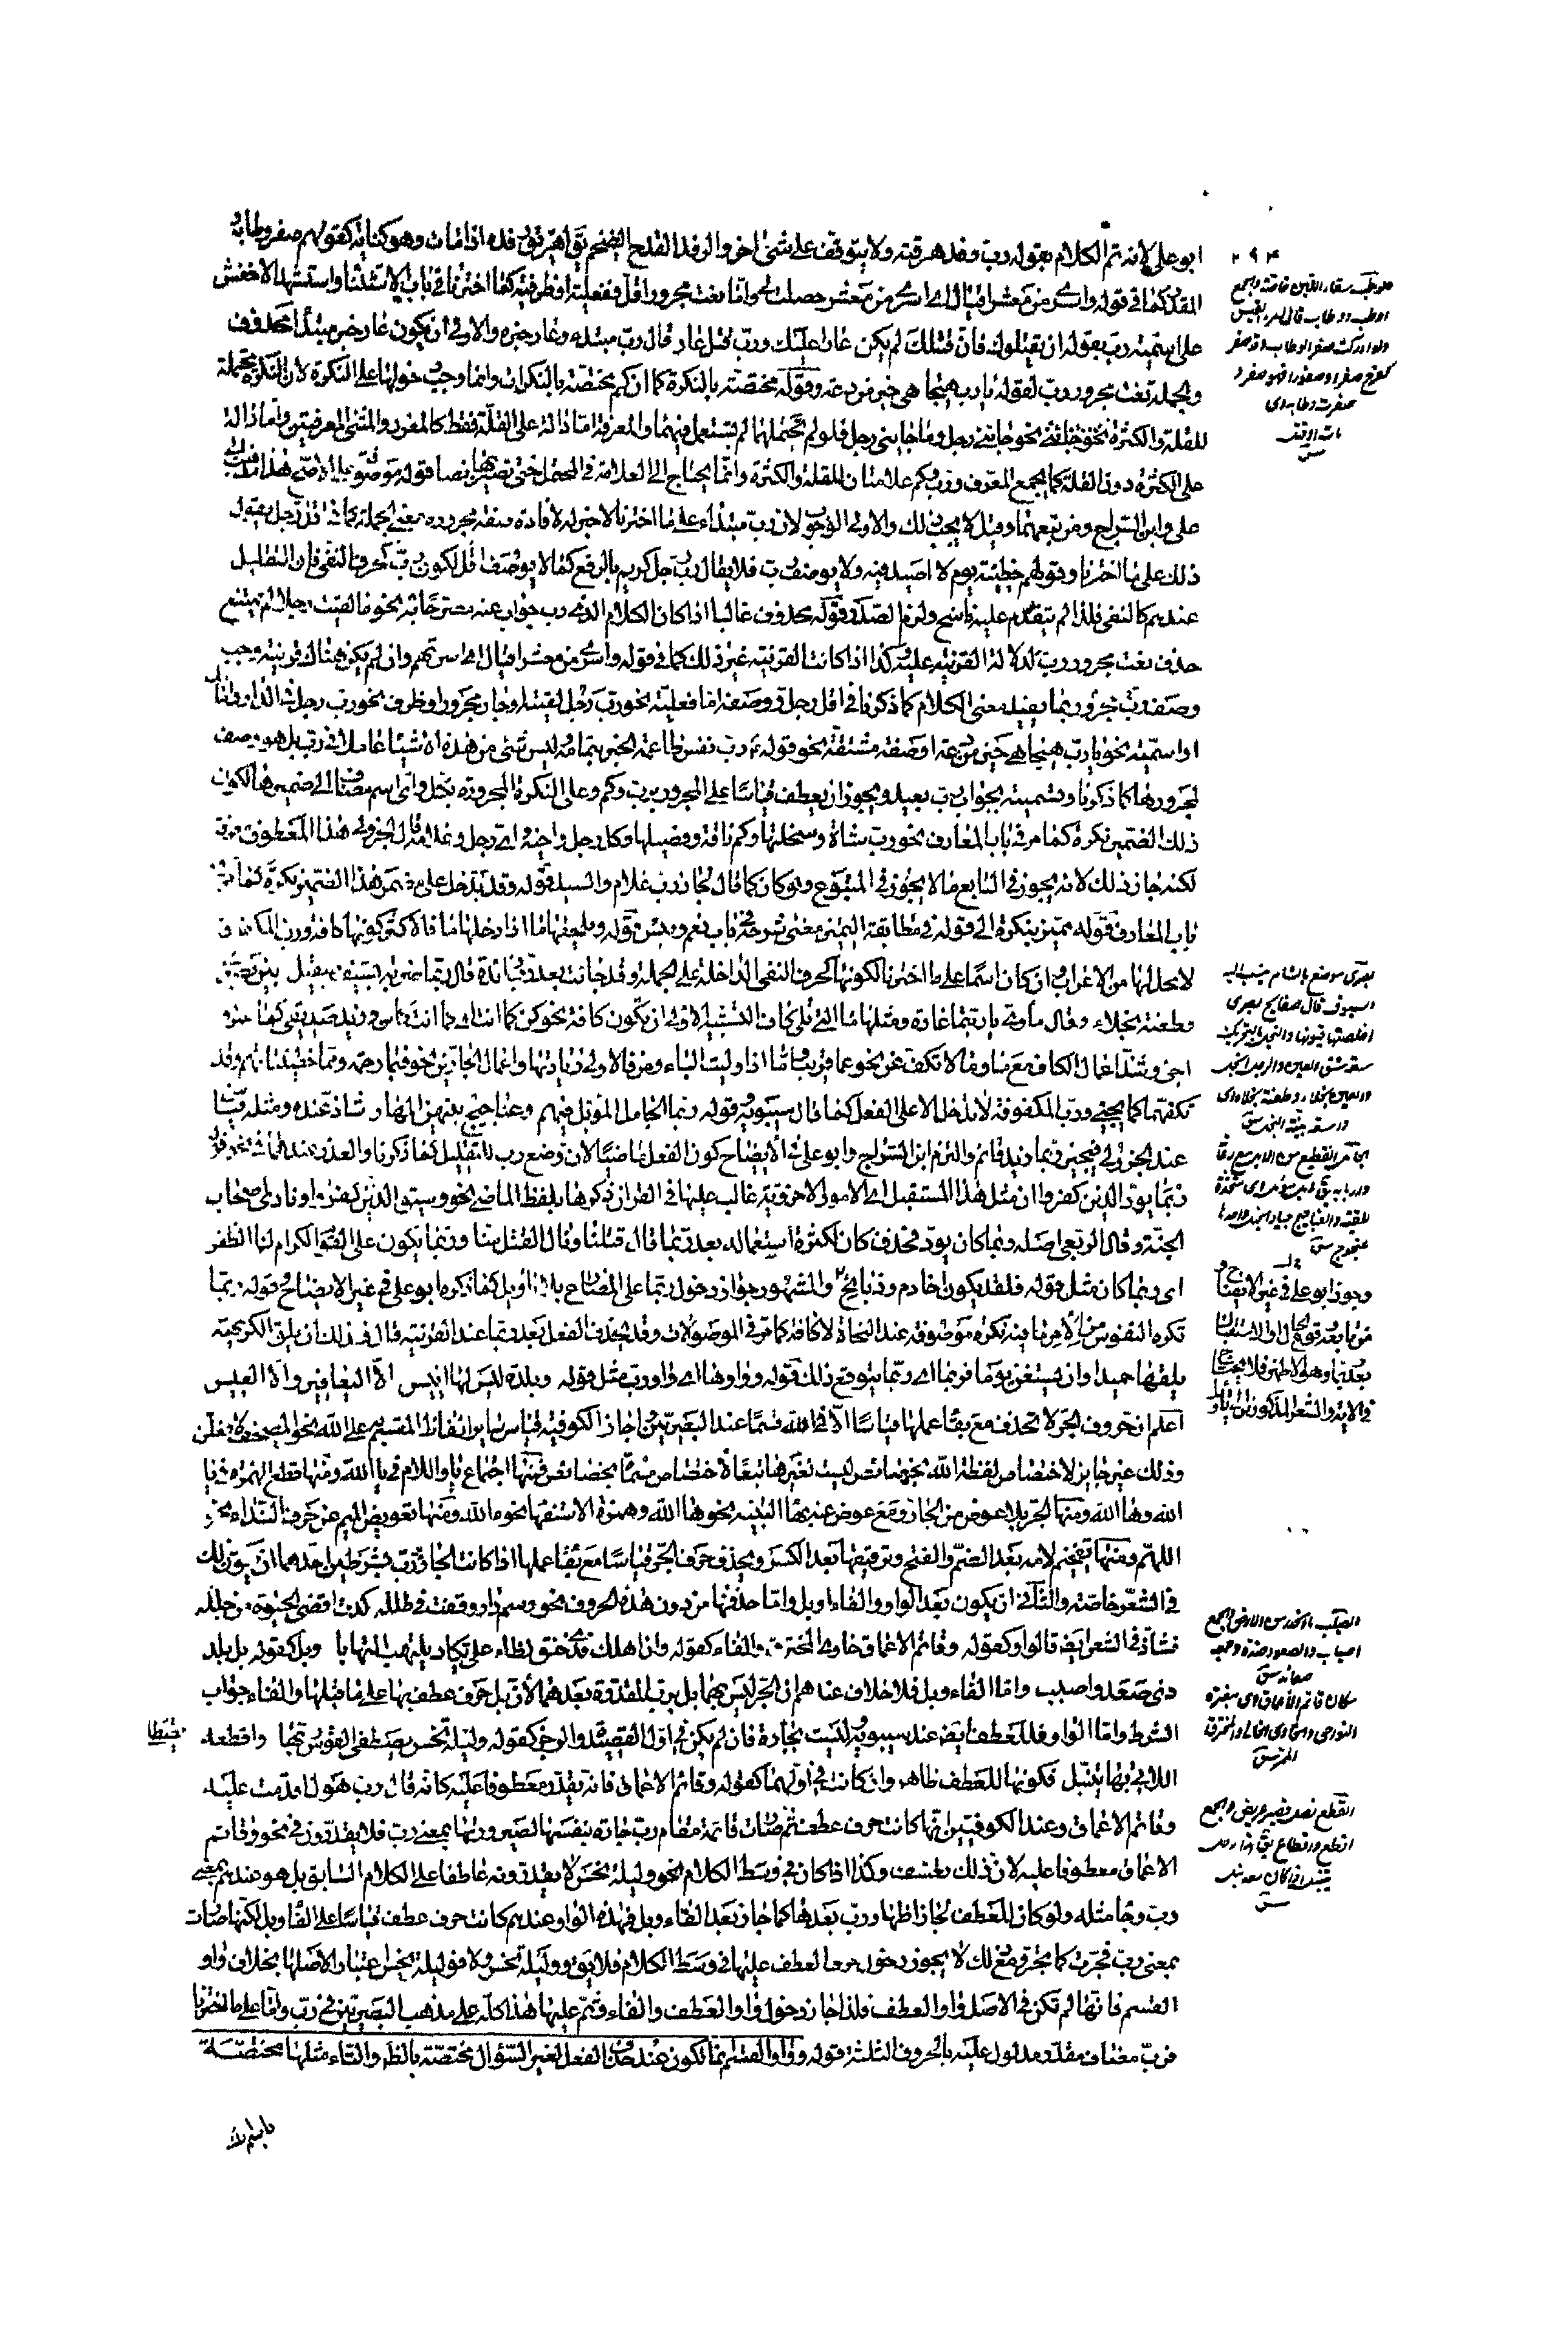 ابو على لانه تم الكلام بقوله رب رفد هرقته ولا يتوقف على شئ اخر والرفد القدح الضخم يق اهريق رفده اذا مات وهو كناية كقولهم صفر وطابه
المقدر كما فى قوله واسرى من معشر اقيال اى اسرى من معشر حصلت لى واما نعت مجرور اقل ففعلية او ظرفية كما اخترنا فى باب الاستثناء واستشهد الاخفش
على اسمية رب بقوله ان يقتلوك فان قتلك لم يكن عارا عليك ورب قتل عار قال رب مبتدء وعار خبره والاولى ان يكون عار خبر مبتدأ محذوف
والجملة نعت مجرور رب لقوله يا رب هيجا هى خير من دعه وقوله مختصة بالنكرة كما ان كم مختصة بالنكرات وانما وجب دخولها على النكرة لان النكرة محتملة
للقلة والكثرة نحو جائنى رجل وما جاءنى رجل فلو لم تحتملهما لم تستعمل فيهما والمعرفة اما دالة على القلة فقط كالمفرد والمثنى المعرفتين واما دالة
على الكثرة دون القلة كالجمع المعرف ورب وكم علامتان للقلة والكثرة وانما يحتاج الى العلامة فى المحتمل حتى تصير بها نصا قوله موصوفة على الاصح هذا مذهب ابى
على وابن السراج ومن تبعهما وقيل لا يجب ذلك والاولى الوجوب لان رب مبتداء على ما اخترنا لا خبر له لافادة صفة مجروره معنى الجملة كما فى اقل رجل يقول
ذلك على ما اخترنا وقولهم خطيئة يوم لا اصيد فيه ولا يوصف رب فلا يقال رب رجل كريم بالرفع كما لا يوصف اقل لكون رب كحرف النفى فان التقليل
عندهم كالنفى فلذا لم يتقدم عليه ناسخ ولزم الصدر وقوله محذوف غالبا اذا كان الكلام الذى رب جواب عنه مصرحا به نحو ما لقيت رجلا لم يمتنع
حذف نعت مجرور رب لدلالة القرينة عليه وكذا اذا كانت القرينة غير ذلك كما فى قوله واسرى من معشر اقيال اى اسرتهم وان لم يكن هناك قرينة وجب
وصف مجرور رب بما يفيد معنى الكلام كما ذكرنا فى اقل رجل ووصفه اما فعلية نحو رب رجل لقيته او جار ومجرور او ظرف نحو رب رجل فى الدار او امامك
او اسمية نحو يا رب هيجا هى خير من دعه او صفة مشتقة نحو قوله رب نفس طاعمة الخبر بتمامه وليس شئ من هذه الاشياء عاملا فى رب بل هو وصف
لمجرورها كما ذكرنا وتسميته بجواب رب بعيد ويجوز ان يعطف قياسا على المجرور برب وكم وعلى النكرة المجرورة بكل واى اسم مضاف الى ضميرها لكون
ذلك الضمير نكرة كما مر فى باب المعارف نحو رب شاة وسخلتها وكم ناقة وفصيلها وكل رجل واخيه واى رجل وغلامه قال الجزولى هذا المعطوف معرفة
لكنه جاز ذلك لانه يجوز فى التابع ما لا يجوز فى المتبوع ولو كان كما قال لجاز رب غلام والسيد قوله وقد تدخل على مضمر هذا الضمير نكرة كما مر فى
باب المعارف قوله مميز بنكرة الى قوله فى مطابقة التمييز معنى شرحه فى باب نعم وبئس قوله ويلحقها ما اذا دخلها ما فالاكثر كونها كافة ورب المكفوفة
لا محل لها من الاعراب وان كان اسما على ما اخترنا لكونها كحرف النفى الداخلة على الجملة وقد جائت بعد رب زائدة قال ربما ضربة بسيف صقيل بين بصرى
وطعنة نجلاء وقال ماوى يا ربتما غارة ومثلها ما التى تلى كاف التشبيه الاولى ان يكون كافة نحو كن كما انت اى كما انت كاس وزيد صديقى كما عمرو
اخى وشذ اعمال الكاف مع ما وما لا تكف عن نحو عما قريب واما اذا وليت الباء ومن فالاولى زيادتها واعمال الجارين نحو فبما رحمة ومما خطيئاتهم وقد
تكفهما كما يجيئ ورب المكفوفة لا تدخل الا على الفعل كما قال سيبويه قوله ربما الجامل المؤبل فيهم وعناجيج بينهن المهار شاذ عنده ومثله قياس
عند الجزولى فيجيز ربما زيد قائم والتزم ابن السراج وابو على فى الايضاح كون الفعل ماضيا لان وضع رب للتقليل كما ذكرنا والعذر عندهما فى نحو قوله
ربما يود الذين كفروا ان مثل هذا المستقبل اى الامور الاخروية غالب عليها فى القران ذكرها بلفظ الماضى نحو وسيق الذين كفروا ونادى اصحاب
الجنة وقال الربعى اصله ربما كان يود فحذف كان لكثرة استعماله بعد ربما قال قتلنا ونال القتل منا وربما يكون على القوم الكرام لنا الظفر
اى ربما كان مثل قوله فلقد يكون اخا دم وذبائح والمشهور جواز دخول ربما على المضارع بلا تاويل كما ذكره ابو على فى غير الايضاح قوله ربما
تكره النفوس من الامر ما فيه نكرة موصوفة عند النحاة لا كافة كما مر فى الموصولات وقد يحذف الفعل بعد ربما عند القرينة قال فذلك ان يلق الكريهة
يلقها حميدا وان يستغن يوما فربما اى ربما يتوقع ذلك قوله وواوها اى واو رب مثل قوله وبلدة ليس لها انيس الا اليعافير والا العيس
اعلم ان حروف الجر لا تحذف مع بقاء عملها قياسا الا فى الله قسما عند البصريين واجاز الكوفية قياس سائر الفاظ المقسم به على الله نحو المصحف لافعلن
وذلك غير جايز لاختصاص لفظة الله بخصائص ليست لغيرها تبعا لاختصاص مسماها بخصائص فمنها اجتماع يا واللام فى يا الله ومنها قطع الهمزة فى يا
الله وها الله ومنها الجر بلا عوض من الجار ومع عوض عنه بها التنبيه نحو ها الله وهمزة الاستفهام نحو ءالله ومنها تعويض الميم عن حرف النداء نحو
اللهم ومنها تفخيم لامه بعد الضم والفتح وترقيقها بعد الكسر ويحذف حرف الجر قياسا مع بقاء عملها اذا كانت الجار رب بشرطين احدهما ان يكون ذلك
فى الشعر خاصة والثانى ان يكون بعد الواو والفاء او بل واما حذفها من دون هذه الحروف نحو رسم دار وقفت فى طلله كدت اقضى الحيوة من جلله
فشاذ فى الشعر ايضا فالواو كقوله وقاتم الاعماق خاوى المخترق والفاء كقوله وان اهلك فذى حنق لظاه على تكاد يلتهب التهابا وبل كقوله بل بلد
ذى صعد واصباب واما الفاء وبل فلا خلاف عندهم ان الجر ليس بهما بل برب المقدرة بعدهما لان بل حرف عطف بها على ما قبلها والفاء جواب
الشرط واما الواو فللعطف ايضا عند سيبويه وليست بجارة فان لم يكن فى اول القصيدة والرجز كقوله وليلة نحس يصطلى القوس ربها واقطعه
اللاتى بها يتنبل فكونها للعطف ظاهر وان كانت فى اولهما كقوله وقاتم الاعماق فانه يقدر معطوفا عليه كانه قال رب هول اقدمت عليه
وقاتم الاعماق وعند الكوفيين انها كانت حرف عطف ثم صارت قائمة مقام رب جارة بنفسها لصيرورتها بمعنى رب فلا يقدرون فى نحو وقاتم
الاعماق معطوفا عليه لان ذلك تعسف وكذا اذا كان فى وسط الكلام نحو وليلة نحس لا يقدرونه عاطفا على الكلام السابق بل هو عندهم بمعنى
رب وجار مثله ولو كان للعطف لجاز اظهار رب بعدها كما جاز بعد الفاء وبل فهذه الواو عندهم كانت حرف عطف قياسا على الفاء وبل لكنها صارت
بمعنى رب فجرت كما تجر ومع ذلك لا يجوز دخول حرف العطف عليها فى وسط الكلام فلا يق ووليلة نحس ولا فوليلة نحس اعتبارا لاصلها بخلاف واو
القسم فانها لم تكن فى الاصل واو العطف فلذا جاز دخول واو العطف والفاء وثم عليها هذا كله على مذهب البصريين فى رب واما على ما اخترنا
فرب مضاف مقدر مدلول عليه بالحروف الثلثة قوله وواو القسم انما تكون عند حذف الفعل لغير السؤال مختصة بالظاهر والتاء مثلها مختصة
باسم الله
٢٩٤
وجوز ابو على فى غير الايضاح